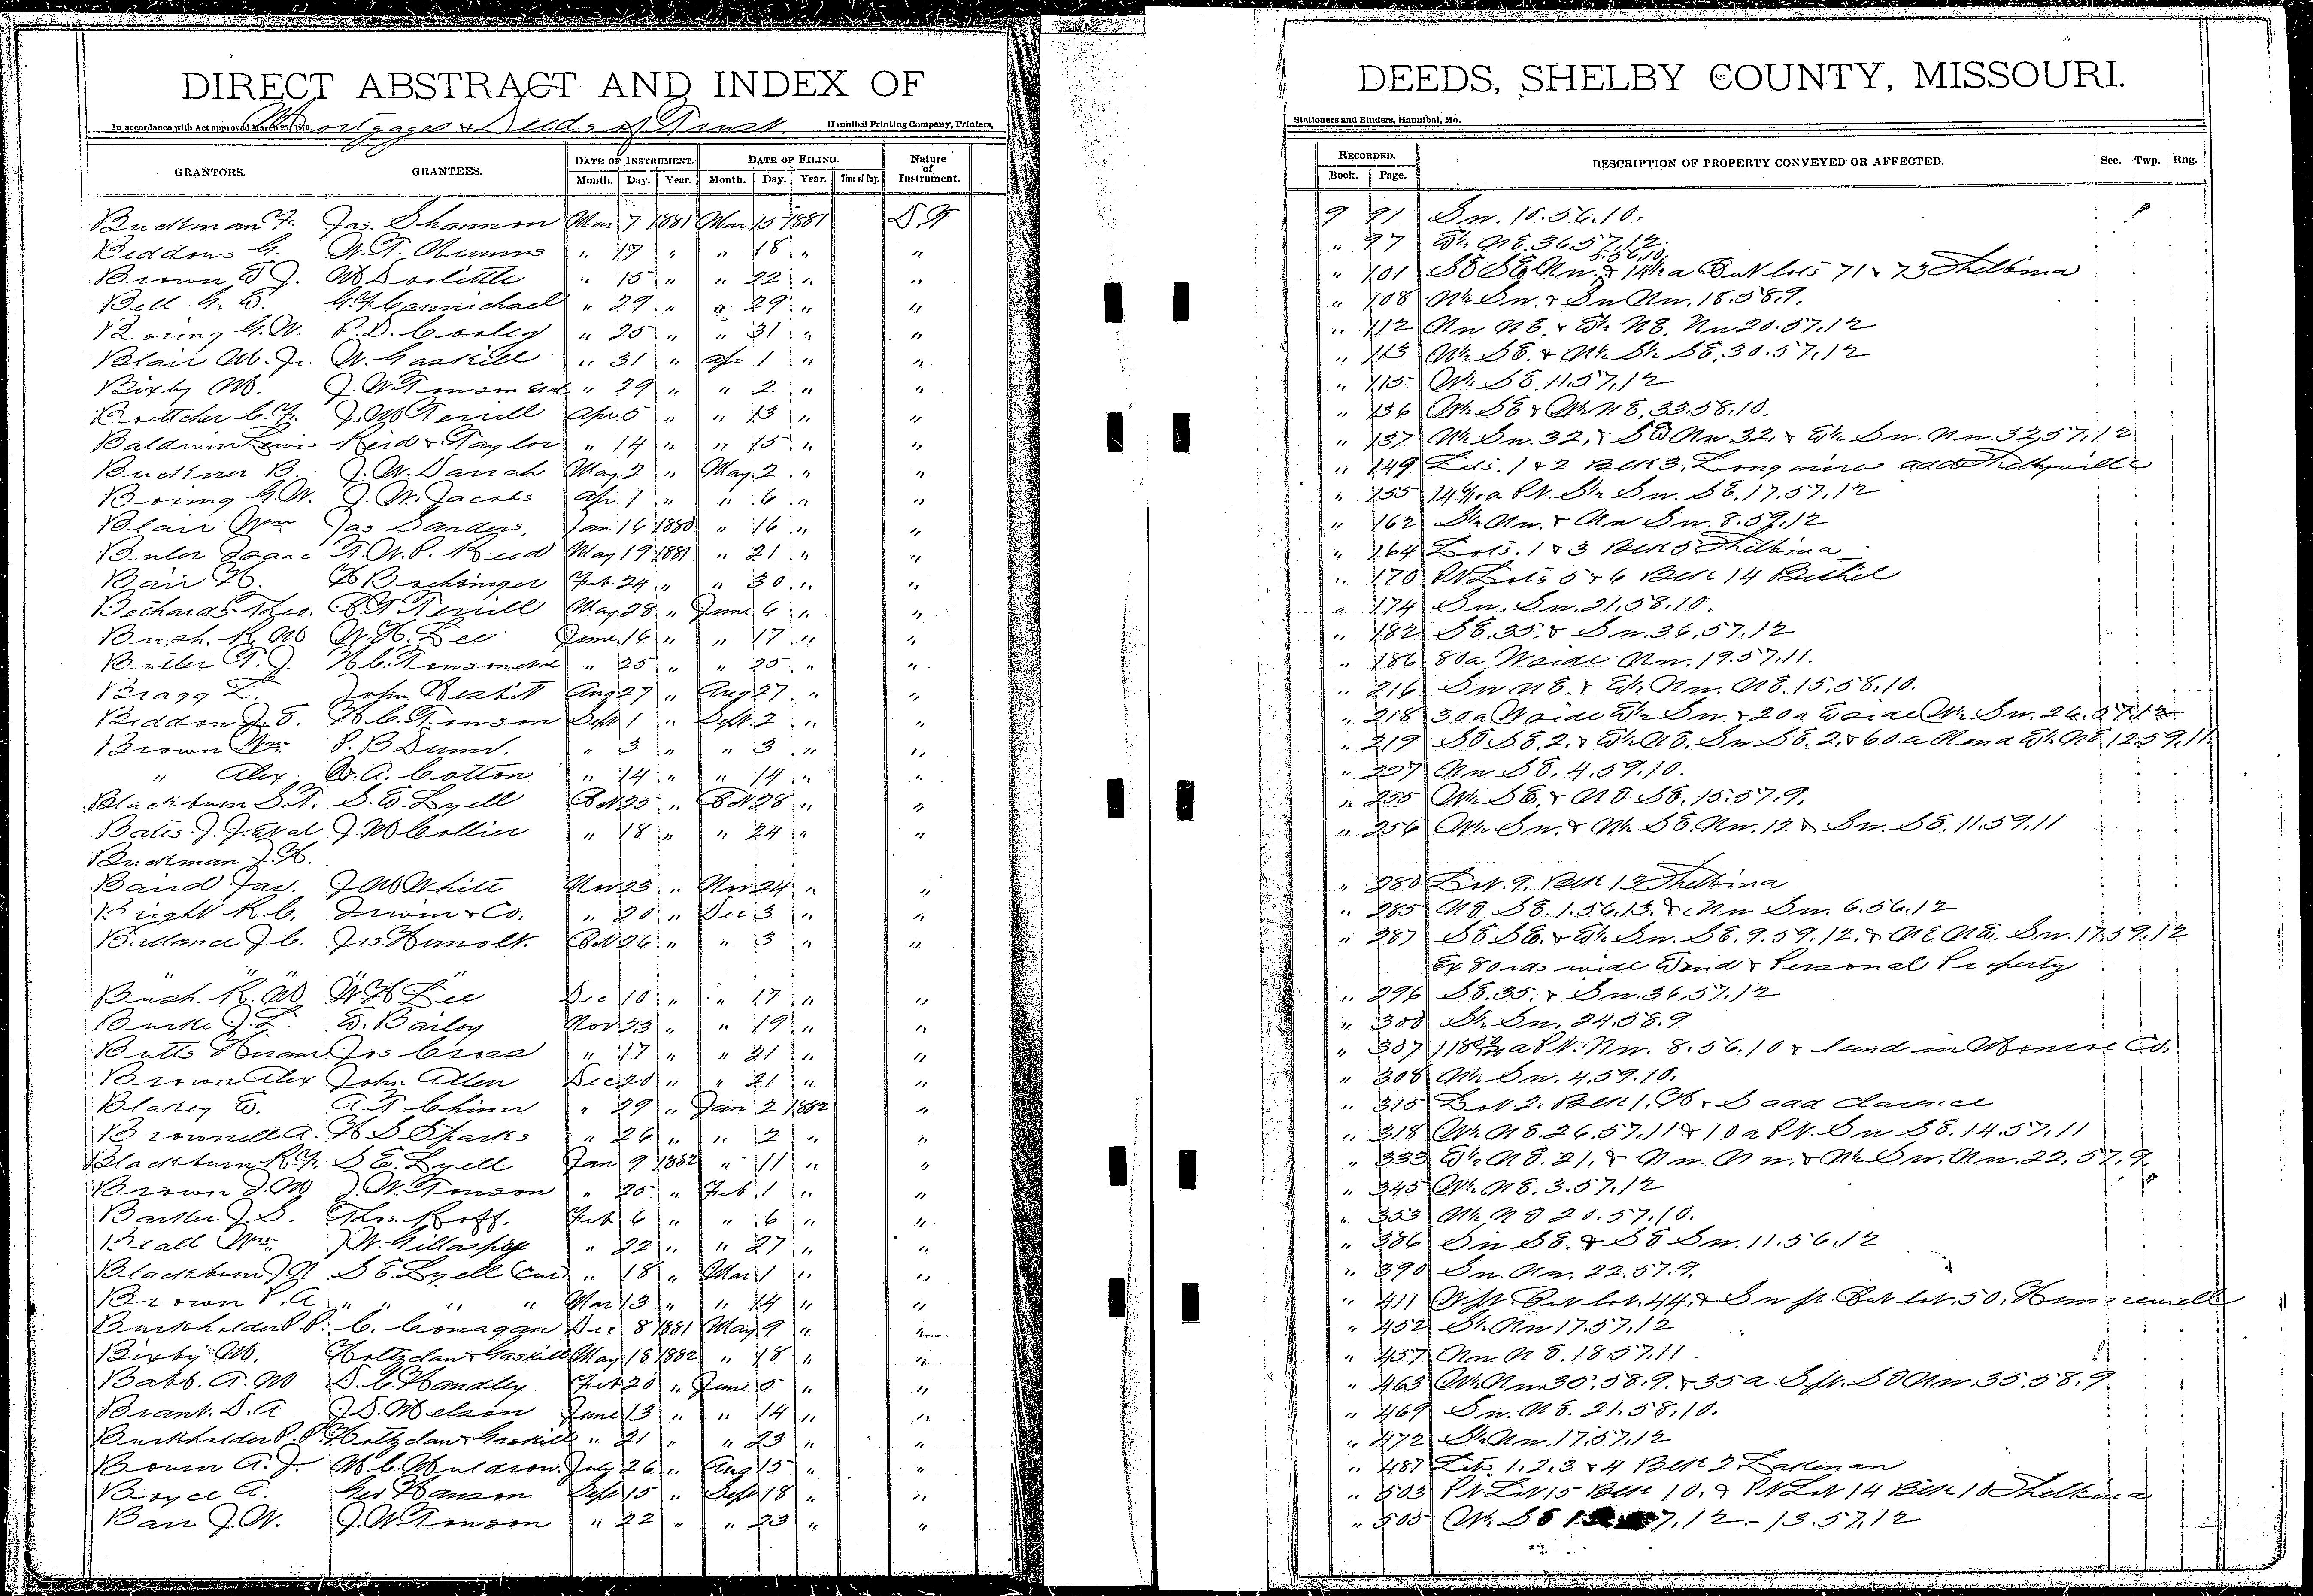 DIRECT ABSTRACT AND INDEX OF
Mortgages & Deeds of Trust
In accordance with Act approved March 25, 1870. Hannibal Printing Company, Printers,
GRANTORS. GRANTEES. DATE OF INSTRUMENT. DATE OF FILING. Nature of Instrument.
Month. Day. Year. Month. Day. Year. Time of Day.
Buckman F. Jas. Sharmon Mar 7 1881 Mar 15 1881 DT
Biddons G. " 17 " " 18 " "
Brown E J. M Doolittle " 15 " " 22 " "
Bell G. E. G. F. Carmichael " 29 " " 29 " "
Boring G. W. P. D. Corley " 25 " " 31 " "
Blair M. Jr. W. Gaskill " 31 " Apr 1 " "
Bixby M. J. W. Towson " 29 " " 2 " "
Boettcher C. F. J. M Terrill Apr 5 " " 13 " "
Baldwin Lewis Reid & Taylor " 14 " " 15 " "
Buckner B. J. W. Darrah May 2 " May 2 " "
Boring G. W. J. W. Jacobs Apr 1 " " 6 " "
Blair Wm Jas Sanders. Jan 16 1880 " 16 " "
Buler Isaac T. W. P. Reid May 19 1881 " 21 " "
Bair H. Feb 24 " " 30 " "
Bethards Theo. Terrill May 28 " June 6 " "
Bush. R. M W. H. Lee June 16 " " 17 " "
Butler T. J. H C. Towson " 25 " " 25 " "
Bragg L. John Nesbit Aug 27 " Aug 27 " "
Biddon J. E. H. C. Towson Sept. 1 " Sept. 2 " "
Brown Wm P. B Dunn. " 3 " " 3 " "
" Alex A. Cotton " 14 " " 14 " "
Blackburn S. T. S. E. Lyell Oct 25 " Oct 28 " "
Bates. J. J. et al J. M Collier " 18 " " 24 " "
Buckman J. H.
Baird Jas. J M White Nov 23 " Nov 24 " "
Bright R. C. Irwin & Co. " 20 " Dec 3 " "
J. C. Jos. Hunolt. Oct 26 " " 3 " "
" " " " "
Bush. R. M W H Lee Dec 10 " " 17 " "
Burke J. L. E. Bailey Nov 23 " " 19 " "
Butts Hiram Jos Cross " 17 " " 21 " "
Brown Alex John Allen Dec 20 " " 21 " "
Blakey E. A. T Chinn " 29 " Jan 2 1882 "
Brownell A. H S Sparks " 26 " " 2 " "
Blackburn R. F. S E. Lyell Jan 9 1882 " 11 " "
Brown J. M J. W. Towson " 25 " Feb 1 " "
Barker J. S. Thos. Roff. Feb 6 " " 6 " "
Beall Wm. J W. Gillaspy " 22 " " 27 " "
Blackburn J N S E. Lyell Cur " 18 " Mar 1 " "
Brown P. A " " " " Mar 13 " " 14 " "
Burkholder P. P. C. Conagan Dec 8 1881 May 9 " "
Bixby M. Holtzclaw & Gaskill May 18 1882 " 18 " "
Babb. A. M D. C. Handley Feb 20 " June 5 " "
Brant. D. A J. D. Melson June 13 " " 14 " "
Burkholder P. P. Holtzclaw & Gaskill " 21 " " 23 " "
Bourn A. J. M. C. Muldrow. July 26 " Aug 15 " "
Boyce A. Geo Hanson Sept 15 " Sept 18 " "
Barr J. W. J. W. Towson " 22 " " 23 " "
DEEDS, SHELBY COUNTY, MISSOURI.
Stationers and Binders, Hannibal, Mo.
RECORDED. DESCRIPTION OF PROPERTY CONVEYED OR AFFECTED. Sec. Twp. Rng.
Book. Page.
9 91 Sw. 10. 56. 10.
" 97 E½ NE. 36. 57. 12
5. 56. 10.
" 101 SE SE Nw. & 14½ a Out lots 71 & 73 Shelbina
" 108 N½ Sw. & Sw Nw. 18. 58. 9.
" 112 Nw NE. & E½ NE. Nw 20. 57. 12
" 113 N½ SE. & N½ S½ SE. 30. 57. 12
" 115 W½ SE. 11. 57. 12
" 136 W½ SE & W½ NE. 33. 58. 10.
" 137 N½ Sw. 32. & SE Nw 32. & E½ Sw. Nw. 32. 57. 12
" 149 Lots. 1 & 2 Blk 3. Longmire add Shelbyville
" 155 a Pt. S½ Sw. SE. 17. 57. 12
" 162 S½ Nw. & Nw Sw. 8. 59. 12
" 164 Lots. 1 & 3 Blk 5 Shelbina
" 170 Pt Lots 5 & 6 Blk 14 Bethel
" 174 Sw. Sw. 21. 58. 10.
" 182 SE. 35. & Sw. 36. 57. 12
" 186 80a W side Nw. 19. 57. 11.
" 216 Sw NE. & E½ Nw. NE. 15. 58. 10.
" 218 30a W side E½ Sw. & 20a E side W½ Sw. 26. 57. 12
" 219 SE SE. 2. & E½ NE. Sw SE. 2. & 60. a N end E½ NE. 12. 59. 11.
" 227 Nw SE. 4. 59. 10.
" 255 W½ SE. & NE SE. 15. 57. 9.
" 256 W½ Sw. & W½ SE. Nw. 12 & Sw. SE. 11. 59. 11
" 280 Lot. 9. Blk 12 Shelbina
" 285 NE SE. 1. 56. 13. & Nw Sw. 6. 56. 12
" 287 SE SE. & E½ Sw. SE. 9. 59. 12. & NE NE. Sw. 17. 59. 12
Ex 8 rods wide E end & Personal Property
" 296 SE. 35. & Sw. 36. 57. 12
" 300 S½ Sw. 24. 58. 9
" 307 a Pt. Nw. 8. 56. 10 & land in Monroe Co.
" 308 N½ Sw. 4. 59. 10.
" 315 Lot 2. Blk 1. H & S add Clarence
" 318 W½ NE. 26. 57. 11 & 10 a Pt. Sw SE. 14. 57. 11
" 333 E½ NE. 21. & Nw. Nw. & N½ Sw. Nw. 22. 57. 9.
" 345 W½ NE. 3. 57. 12
" 353 N½ NE 20. 57. 10.
" 386 Sw SE. & SE Sw. 11. 56. 12
" 390 Sw. Nw. 22. 57. 9.
" 411 W pt. Out lot. 44. & Sw pt. Out lot. 50. Hunnewell
" 452 S½ Nw 17. 57. 12
" 457 Nw NE. 18. 57. 11.
" 463 W½ Nw. 35. 58. 9. & 35 a S pt. SE Nw. 35. 58. 9
" 469 Sw. NE. 21. 58. 10.
" 472 S½ Nw. 17. 57. 12
" 487 Lots 1. 2. 3 & 4 Blk 2 Lakenan
" 503 Pt. Lot 15 Blk 10. & Pt Lot 14 Blk 10 Shelbina
" 505 W½ SE 7. 12 - 13. 57. 12